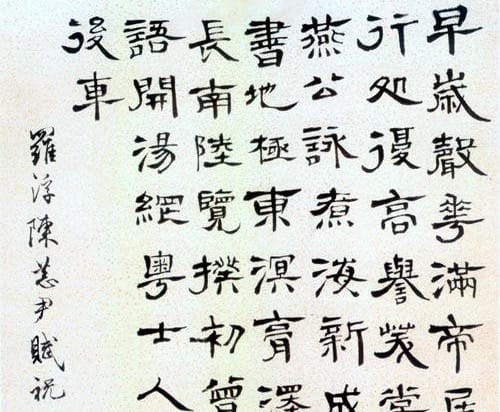 早歲聲華滿帝居
行処復高譽
燕公詠煮海新成
書地極東溟膏澤
長南陸覽揆初曾
語開湯網粵士人
後車
羅浮陳恭尹賦祝